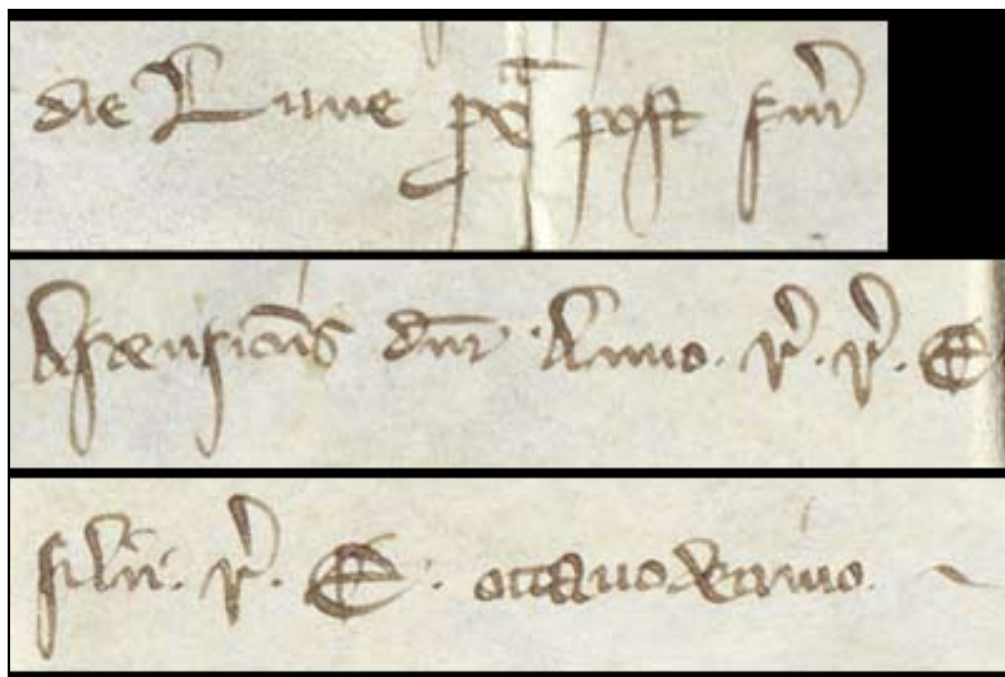 die Lune px̄ post fm̄
Ascensiōnis dn̄i Anno. r̓. r̓. E
filii. r̓. E. octauo decimo.